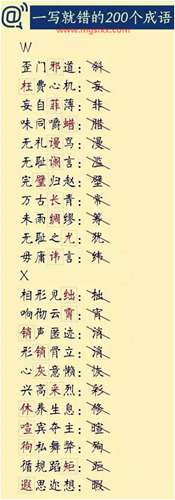 @
一写就错的200个成语
www.mgsxx.com
W
歪门邪道：斜
枉费心机：妄
妄自菲薄：非
味同嚼蜡：腊
无礼谩骂：漫
无耻谰言：滥
完璧归赵：壁
万古长青：常
未雨绸缪：筹
无耻之尤：犹
毋庸讳言：纬
X
相形见绌：拙
响彻云霄：宵
销声匿迹：消
形销骨立：消
心灰意懒：恢
兴高采烈：彩
休养生息：修
喧宾夺主：暄
徇私舞弊：殉
循规蹈矩：距
遐思迩想：暇